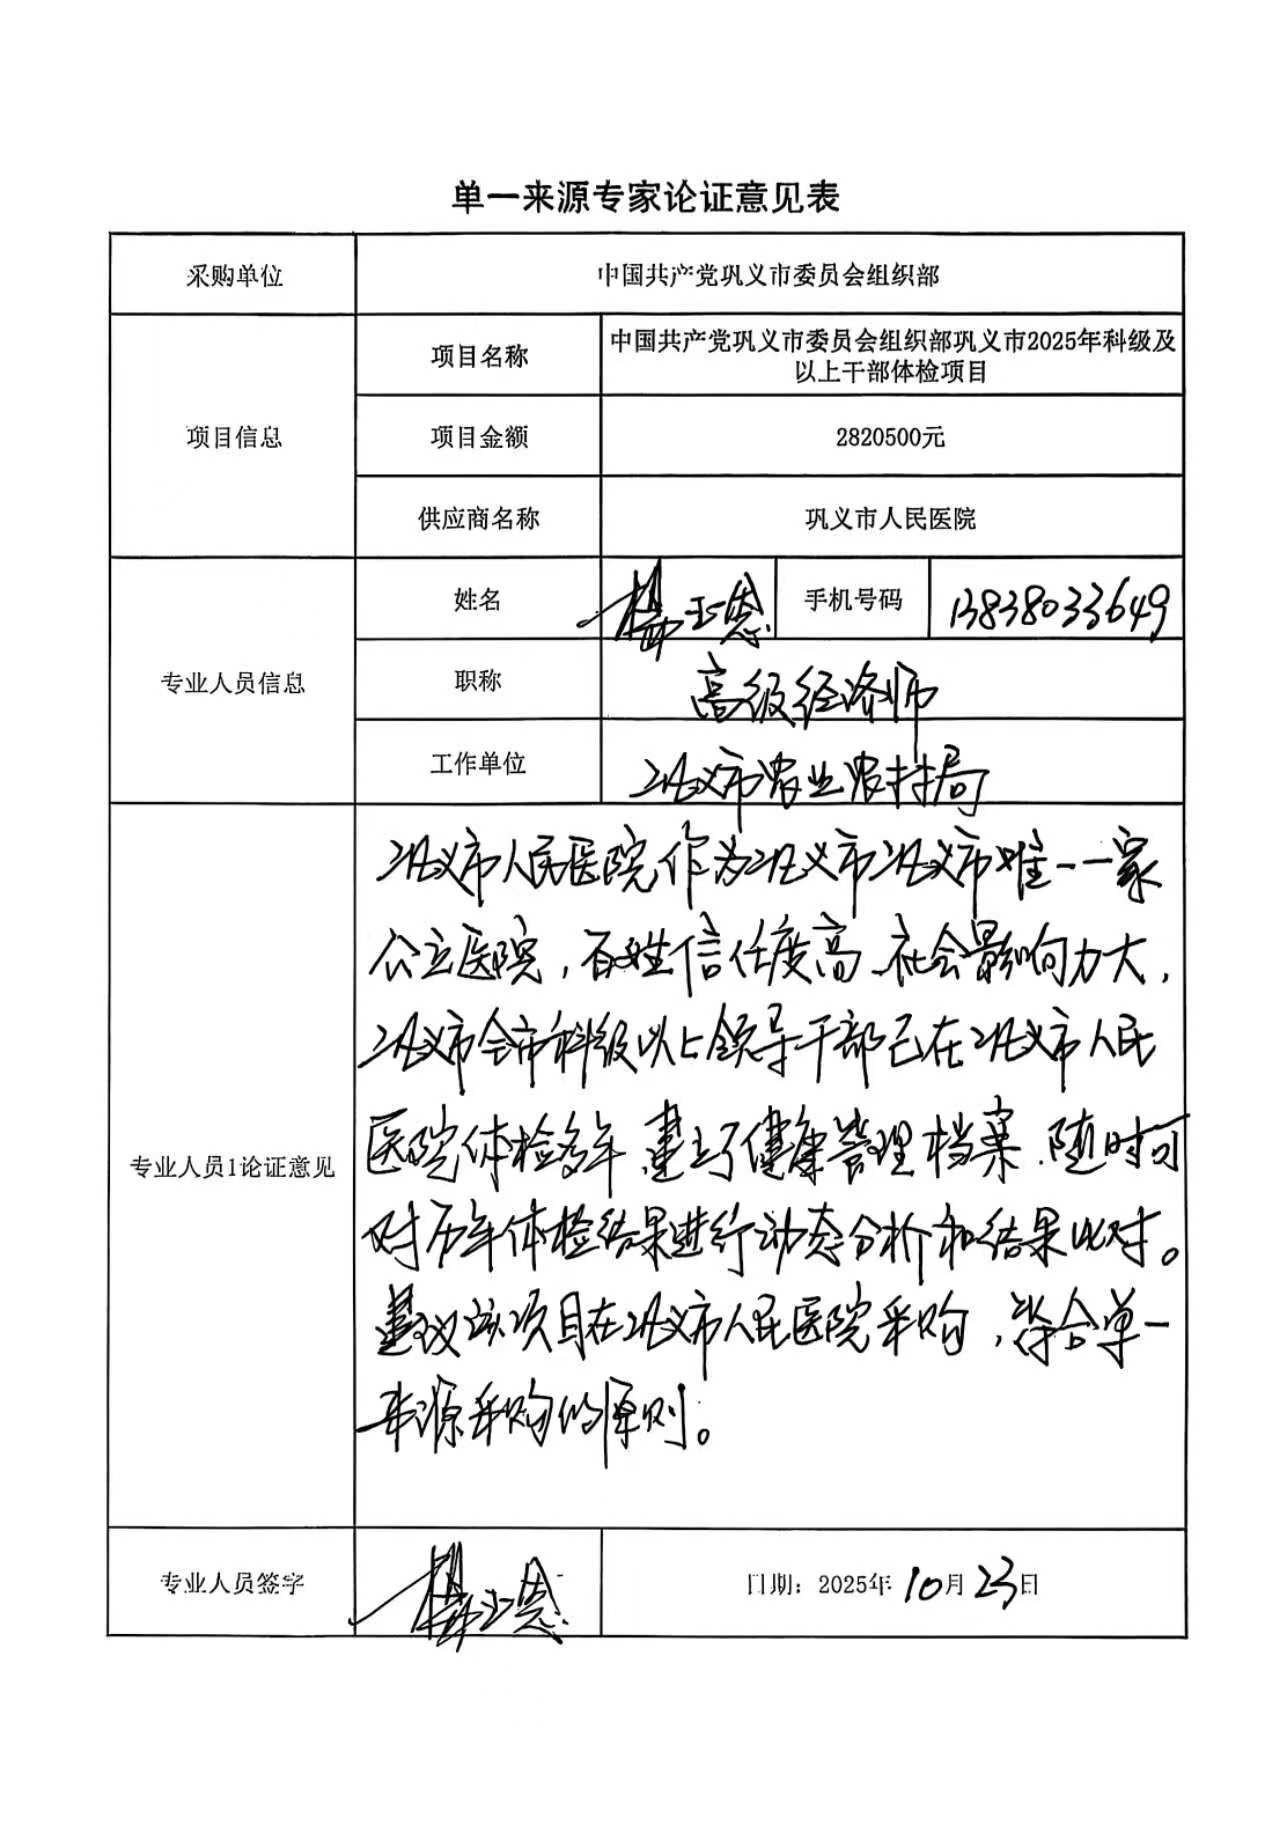 单一来源专家论证意见表
采购单位 中国共产党巩义市委员会组织部
项目信息 项目名称 中国共产党巩义市委员会组织部巩义市2025年科级及
以上干部体检项目
项目金额 2820500元
供应商名称 巩义市人民医院
专业人员信息 姓名 手机号码 13838033649
职称 高级经济师
工作单位 巩义市农业农村局
专业人员1论证意见
巩义市人民医院作为巩义市巩义市唯一一家
公立医院,百姓信任度高、社会影响力大,
巩义市全市科级以上领导干部已在巩义市人民
医院体检多年,建立了健康管理档案,随时可
对历年体检结果进行动态分析和结果比对。
建议该项目在巩义市人民医院采购,符合单一
来源采购的原则。
专业人员签字 日期:2025年10月23日